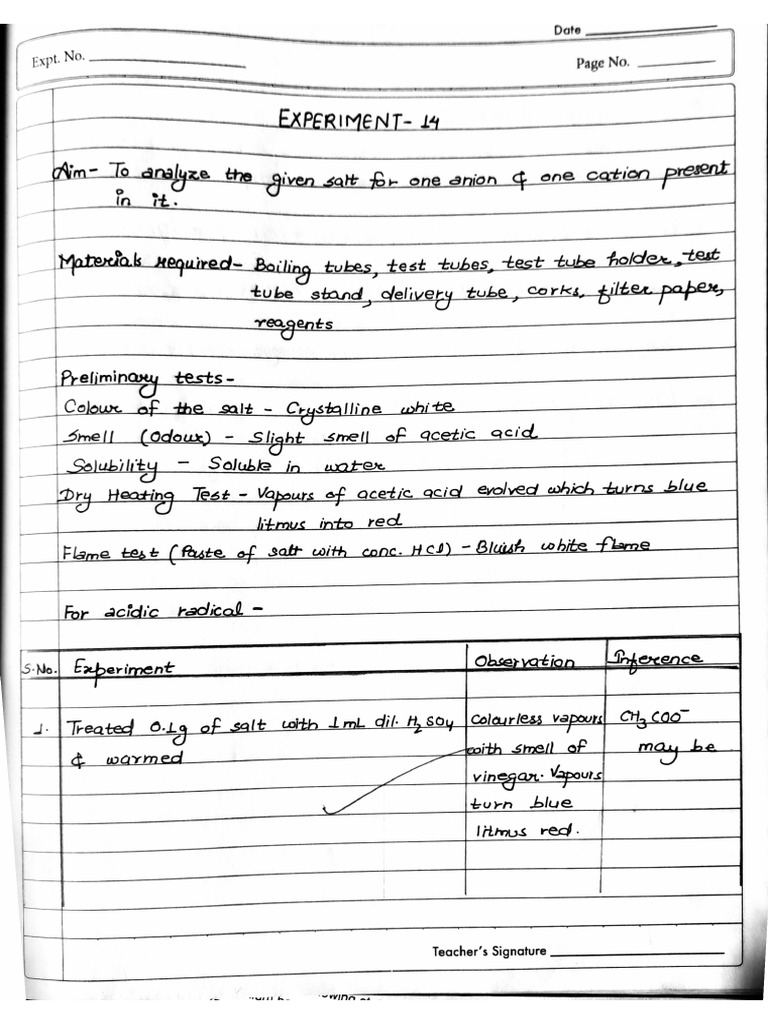 Date
Expt. No.
Page No.
EXPERIMENT- 14
Aim- To analyze the given salt for one anion & one cation present
in it.
Materials required- Boiling tubes, test tubes, test tube holder, test
tube stand, delivery tube, corks, filter paper,
reagents
Preliminary tests-
Colour of the salt - Crystalline white
Smell (Odour) - Slight smell of acetic acid
Solubility - Soluble in water
Dry Heating Test - Vapours of acetic acid evolved which turns blue
litmus into red
Flame test (Paste of salt with conc. HCl) - Bluish white flame
For acidic radical -
S.No. Experiment Observation Inference
1. Treated 0.1g of salt with 1mL dil. H₂SO₄ Colourless vapours CH₃COO⁻
& warmed with smell of may be
vinegar. Vapours
turn blue
litmus red.
Teacher's Signature